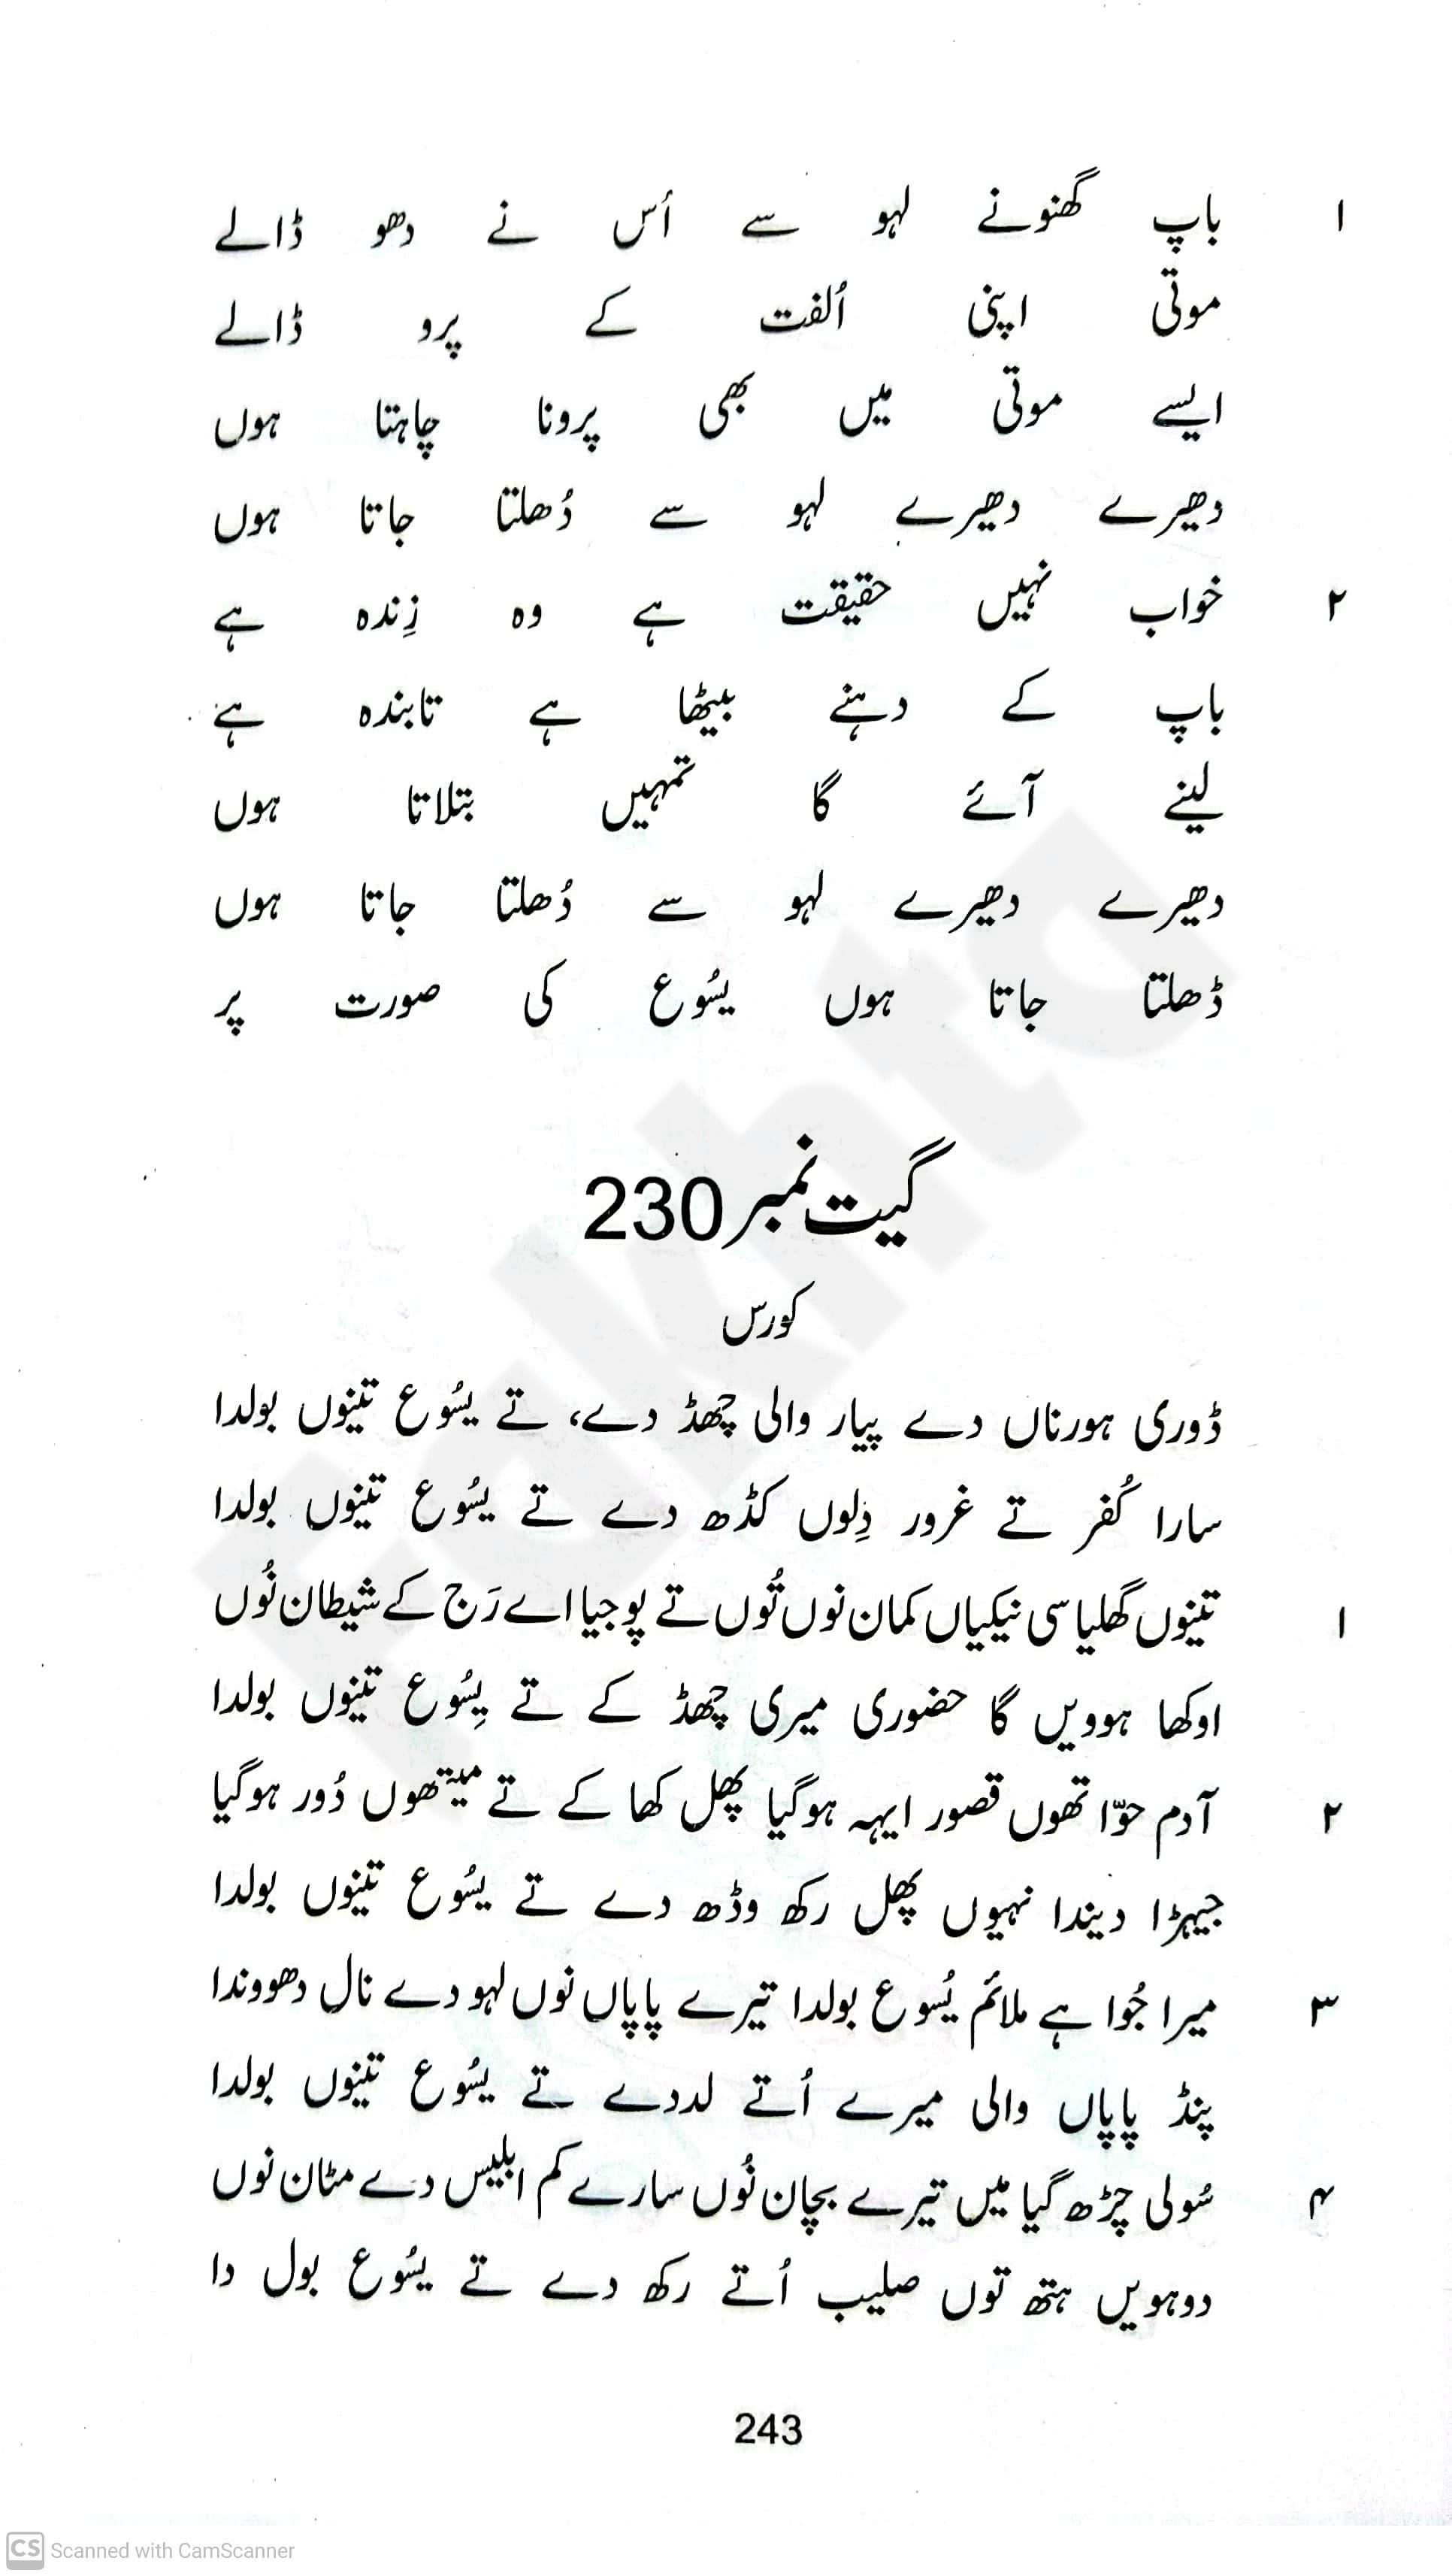 ۱ باپ گھنونے لہو سے اُس نے دھو ڈالے
موتی اپنی اُلفت کے پرو ڈالے
ایسے موتی میں بھی پرونا چاہتا ہوں
دھیرے دھیرے لہو سے دُھلتا جاتا ہوں
۲ خواب نہیں حقیقت ہے وہ زِندہ ہے
باپ کے دہنے بیٹھا ہے تابندہ ہے
لینے آئے گا تمہیں بتلاتا ہوں
دھیرے دھیرے لہو سے دُھلتا جاتا ہوں
ڈھلتا جاتا ہوں یسُوع کی صورت پر
گیت نمبر 230
کورس
ڈوری ہورناں دے پیار والی چھڈ دے، تے یسُوع تینوں بولدا
سارا کُفر تے غرور دِلوں کڈھ دے تے یسُوع تینوں بولدا
۱ تینوں گھلیا سی نیکیاں کمان نوں تُوں تے پوجیا اے رَج کے شیطان نُوں
اوکھا ہوویں گا حضوری میری چھڈ کے تے یِسُوع تینوں بولدا
۲ آدم حوّا تھوں قصور ایہہ ہوگیا پھل کھا کے تے میتھوں دُور ہوگیا
جیہڑا دیندا نہیوں پھل رکھ وڈھ دے تے یسُوع تینوں بولدا
۳ میرا جُوا ہے ملائم یُسوع بولدا تیرے پاپاں نوں لہو دے نال دھووندا
پنڈ پاپاں والی میرے اُتے لددے تے یسُوع تینوں بولدا
۴ سُولی چڑھ گیا میں تیرے بچان نُوں سارے کم ابلیس دے مٹان نوں
دوہویں ہتھ توں صلیب اُتے رکھ دے تے یسُوع بول دا
243
Fakhta
CS Scanned with CamScanner